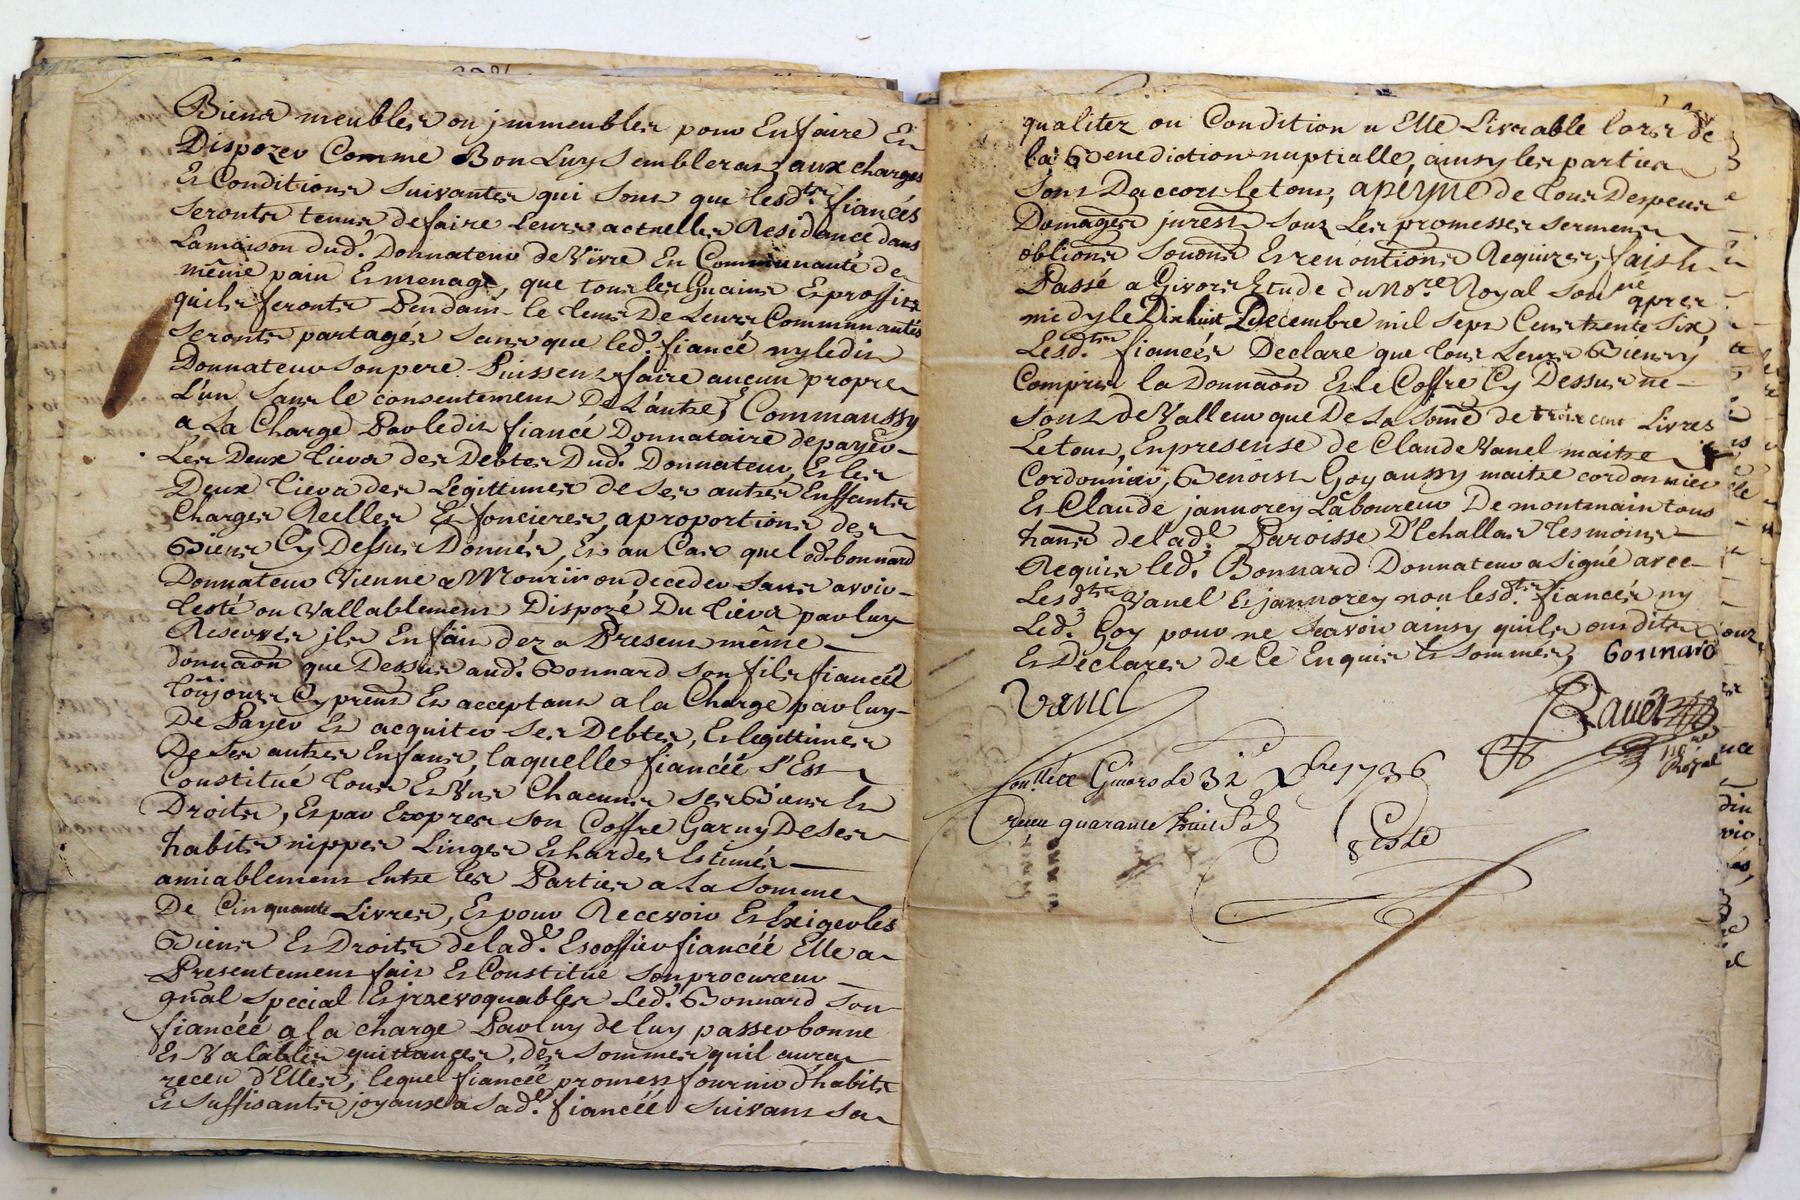 Biens meubles ou jmmeubles pour En faire Et
Dispozer Comme Bon Luy semblerat, aux charges
Et Conditions suivantes qui sont que lesd.tes fiancés
seronts tenus de faire Leurs actuelles Residance dans
La maison dud. Donnateur de Vivre En Communauté de
même pain Et menage, que tous les Guains Et proffits
quils feronts Pendant le tems De Leurs Communautés
seronts partagés sans que led. fiancé ny ledit
Donnateur son pere Puissent faire aucun propre
L'un sans le consentement De L'autre, Comm aussy
a La Charge Par ledit fiancé Donnataire de payer
Les Deux tiers des Debtes Dud. Donnateur, Et les
Deux tiers des Legittimes de ses autres Enffants
Charges Reelles Et foncieres, a proportions des
Biens Cy Dessus Donnés, Et au Cas que led. bonnard
Donnateur Vienne a Mourir ou deceder sans avoir
testé ou Vallablement Dispozé Du tiers par luy
Reservés jls En fait dez a Present même
donnaon que Dessus aud. Bonnard son fils fiancéé
toujours Cy prent Et acceptant a la Charge par luy
De Payer Et acquiter ses Debtes, Et legittimes
De ses autres Enfans, laquelle fiancéé s'Est
Constitué tous Et Uns Chacuns ses Biens Et
Droits, Et par Exopres son Coffre Garny De ses
habits nippes Linges Et hardes Estimés
amiablement Entre les Parties a La somme
De Cinquante Livres, Et pour Recevoir Et Exiger les
Biens Et Droits de lad.e Escoffier fiancéé Elle a
Presentement fait Et Constitué son procureur
gñal special Et jrrevoquables Led. Bonnard son
fiancéé a la charge Par luy de luy passer bonne
Et Valables quittances, des sommes quil aura
receu d'Elles, lequel fiancéé promest fournir d'habits
Et suffisants joyaux a sad.e fiancéé suivant sa
qualitez ou Condition a Elle Livrable lors de
la Benediction nuptialle, ainsy les parties
sont D'accort le tout, a peyne de tous Despens
Domages jurest sous Les promesses serment
oblions soũons Et renontions Requizes, fait Et
Passé a Givors Etude du No.re Royal sou.ne apres
midy le Dix huit Decembre mil sept Cent trente six
Lesd.tes fiancés Declare que tous Leurs Biens y
Compris la Donnaon Et le Coffre Cy Dessus ne
sont de Valleur que De La some de trois cent Livres
Le tout, En presense de Claude Vanel maitre
Cordonnier, Benoist Goy aussy maitre cordonnier
Et Claude jannorey Laboureur De montmain tous
hans de lad.e Paroisse D'Echallas tesmoins
Requis led. Bonnard Donnateur a signé avec
Lesd.tes Vanel Et jannorey non lesd.ts fiancés ny
Led. Goy pour ne scavoir ainsy quils ont dits
Et Declarés de Ce Enquis Et sommés, Bonnard
Vanel
No.re Royal
Con.llé a Givors le 31 Xbre 1736
Receu quarante huit sols